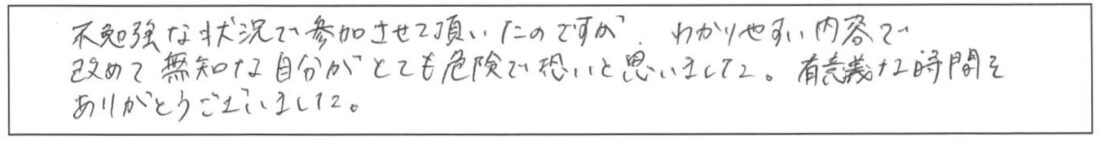 不勉強な状況で参加させて頂いたのですが、わかりやすい内容で
改めて無知な自分がとても危険で恐いと思いました。有意義な時間を
ありがとうございました。